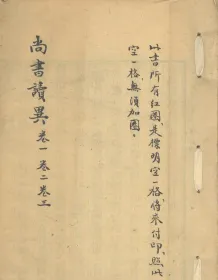 此書所有紅圈，是標明空一格，將來付印，照此
空一格，無須加圈。
尚書讀異 卷一 卷二 卷三